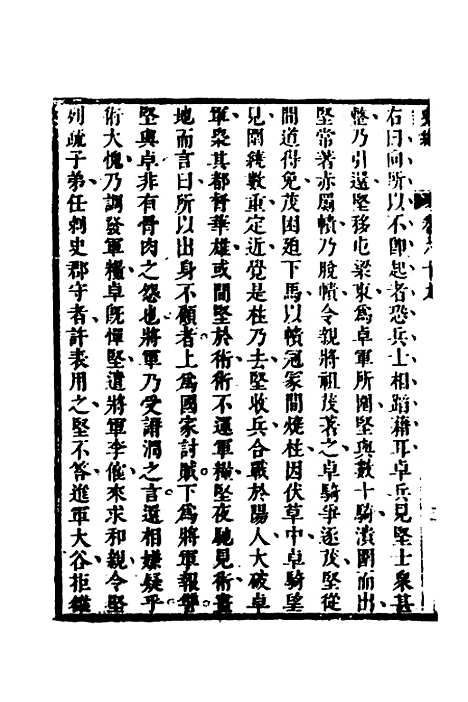 右曰向所以不卽起者恐兵士相蹈藉耳卓兵見堅士衆甚
整乃引還堅移屯梁東爲卓軍所圍堅與數十騎潰圍而出
堅常著赤罽幘乃脫幘令親將祖茂著之卓騎爭逐茂堅從
間道得免茂困迫下馬以幘冠冢間燒柱因伏草中卓騎望
見圍繞數重定近覺是柱乃去堅收兵合戰於陽人大破卓
軍梟其都督華雄或間堅於術術不運軍糧堅夜馳見術畫
地而言曰所以出身不顧者上爲國家討賊下爲將軍報讐
堅與卓非有骨肉之怨也將軍乃受譖潤之言還相嫌疑乎
術大愧乃調發軍糧卓旣憚堅遣將軍李傕來求和親令堅
列疏子弟任刺史郡守者許表用之堅不答進軍大谷拒雒